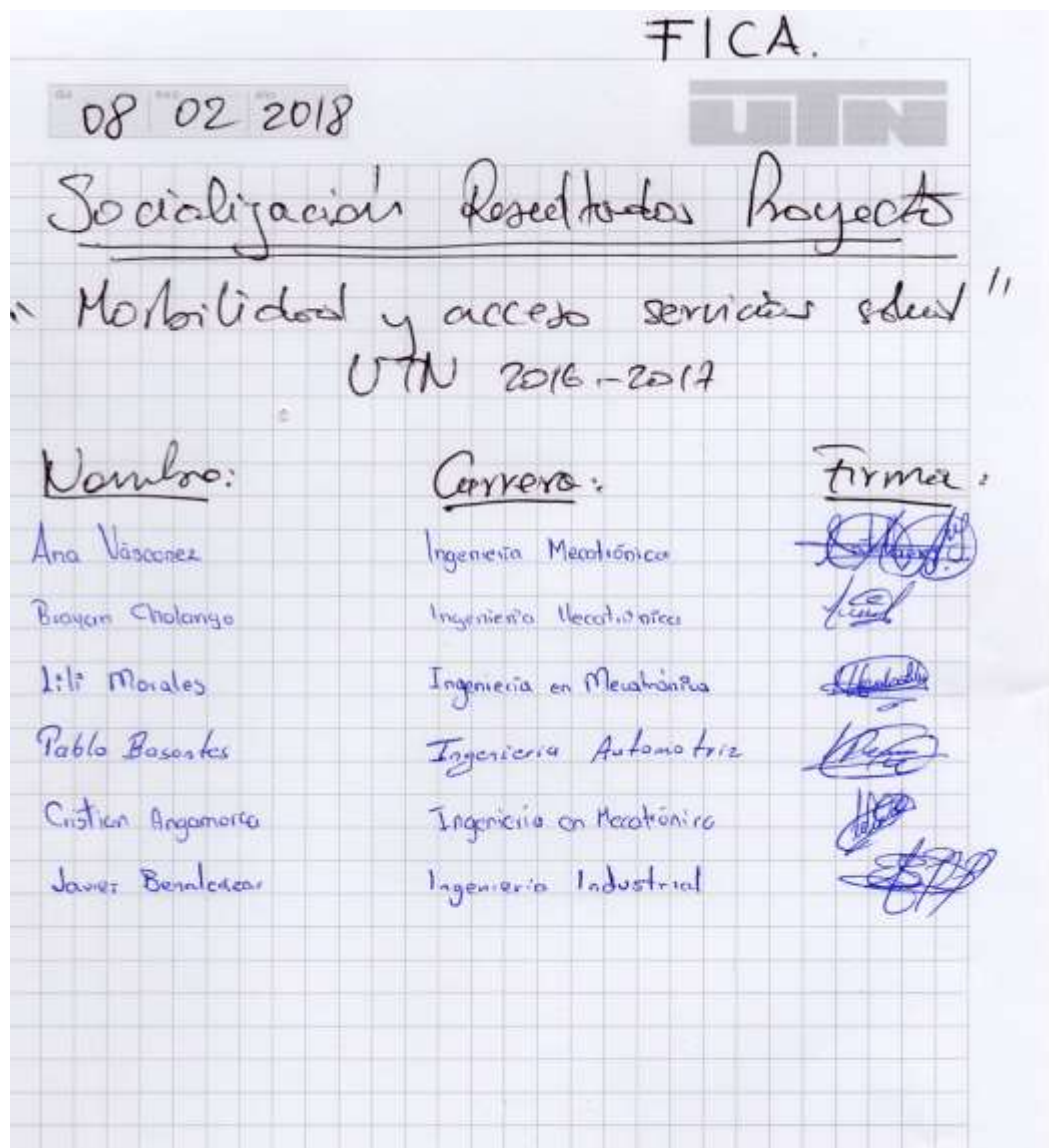 FICA.
08 02 2018
UTN
Socialización Resultados Proyecto
"Morbilidad y acceso servicios salud"
UTN 2016-2017
Nombre: Carrera: Firma:
Ana Vásconez Ingeniería Mecatrónica
Brayan Cholango Ingeniería Mecatrónica
Lili Morales Ingeniería en Mecatrónica
Pablo Basantes Ingenieria Automotriz
Cristian Angamarca Ingeniería en Mecatrónica
Javier Benalcázar Ingenieria Industrial